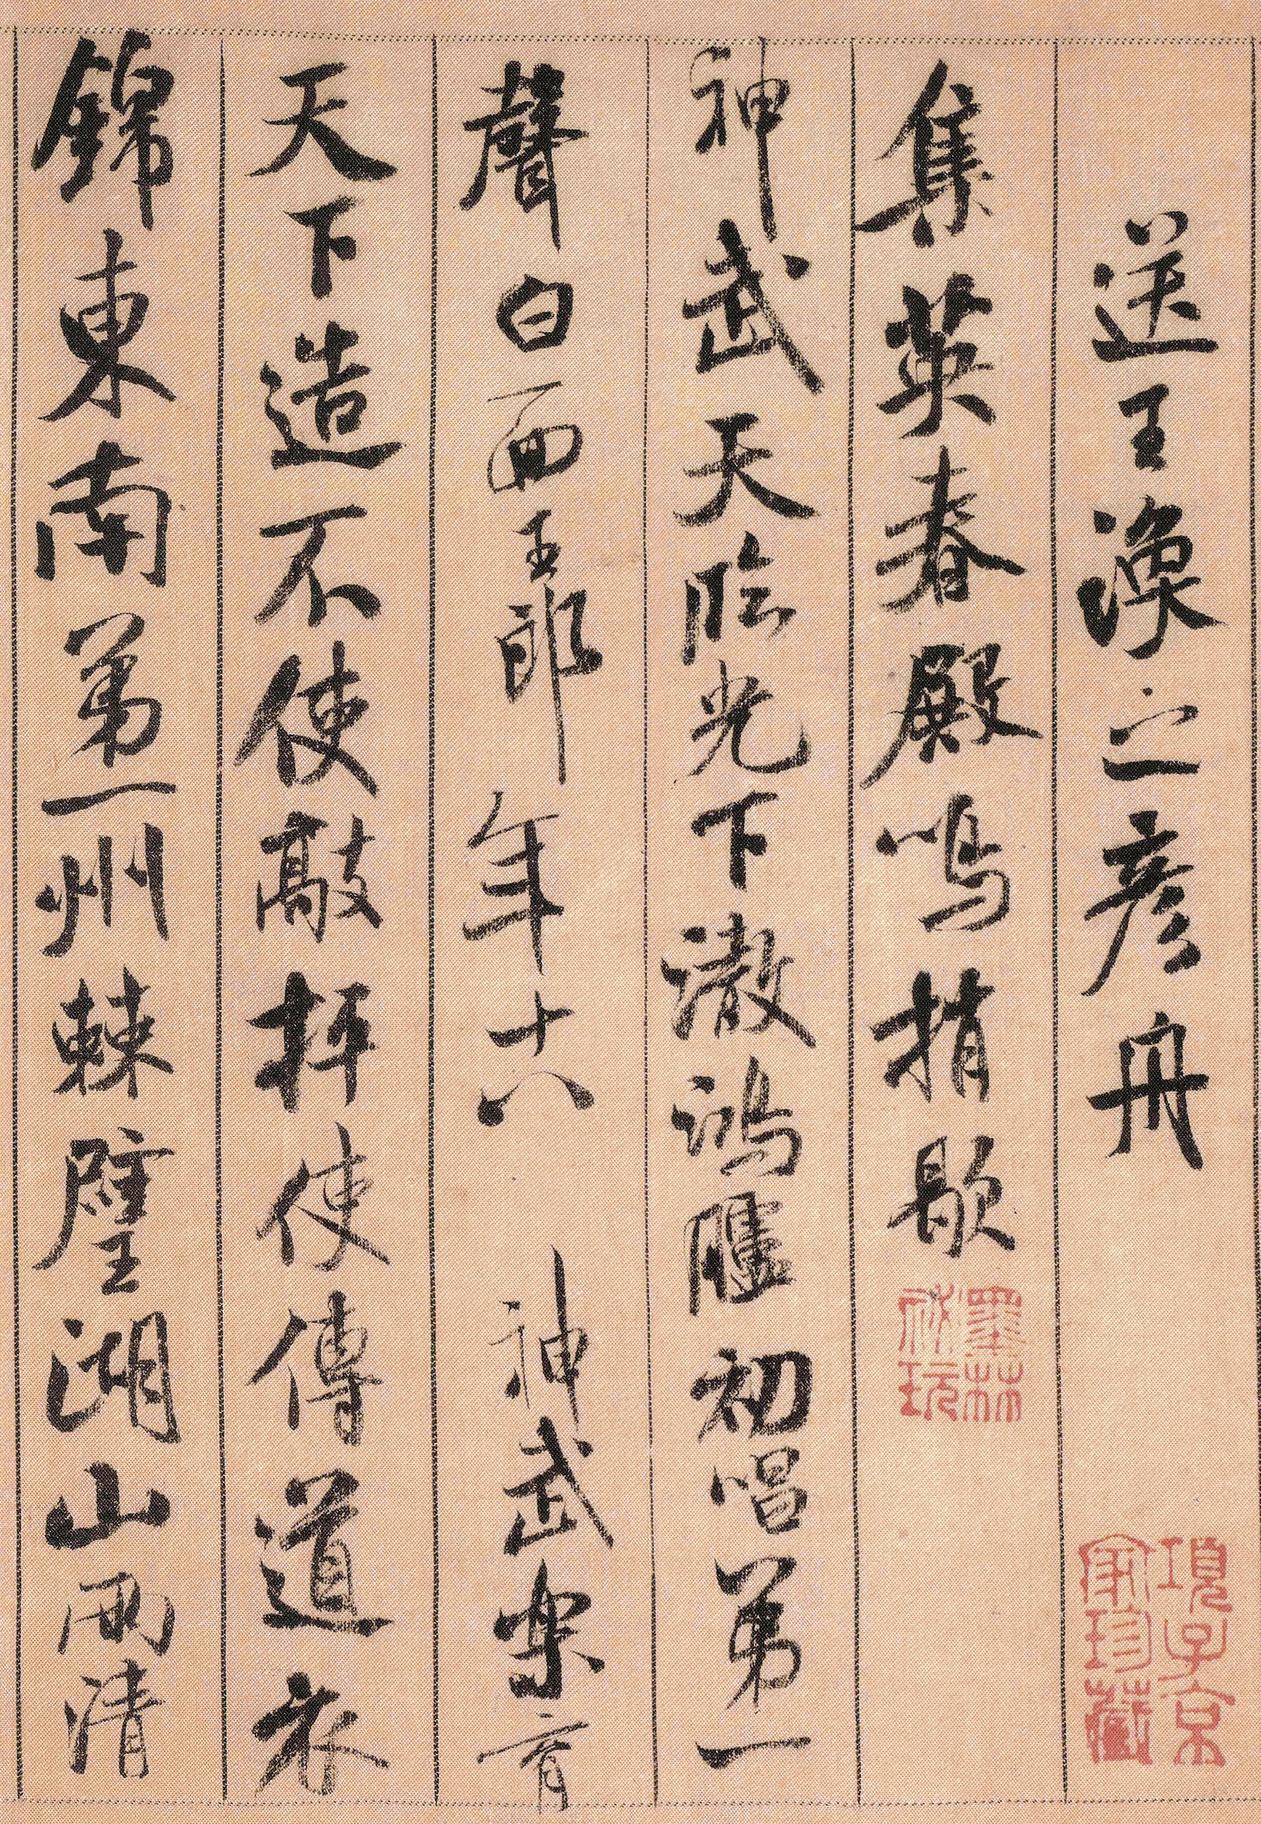 送王渙之彥舟
集英春殿鳴捎歇
神武天臨光下澈鴻臚初唱第一
聲白面王郎年十八神武樂育
天下造不使敲枰使傳道衣
錦東南第一州棘璧湖山兩清
墨林祕玩
項子京家珍藏